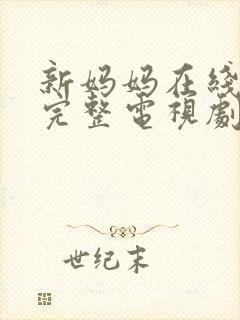 新妈妈在线
完整電視劇
世纪末